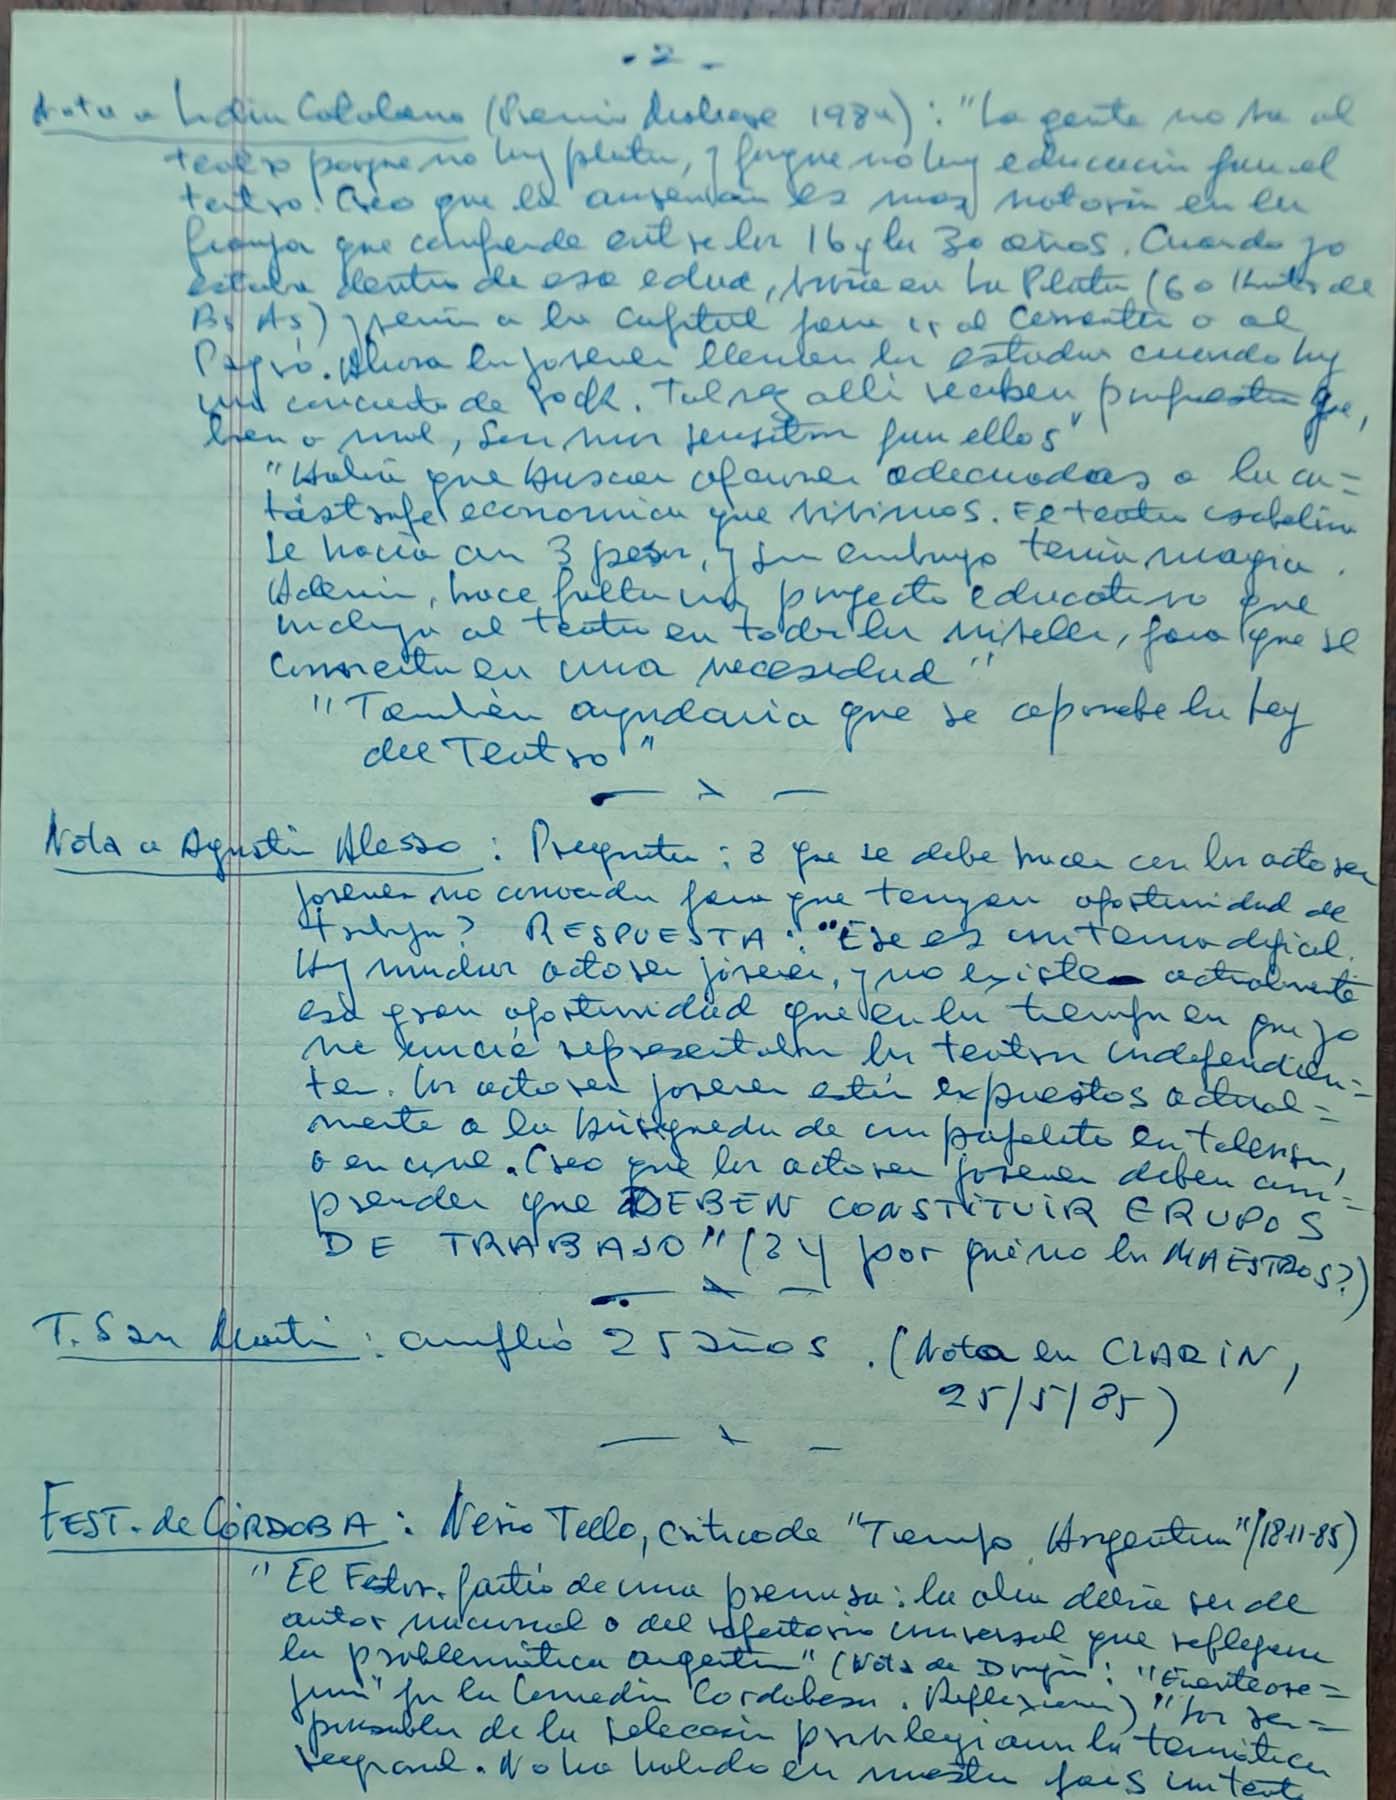 - 2 -
Nota a Lidia Catalano (Premio Moliere 1984) : "La gente no va al
teatro porque no hay plata, y porque no hay educación para el
teatro. Creo que la ausencia es mas notoria en la
franja que comprende entre los 16 y los 30 años. Cuando yo
estaba dentro de esa edad, vivía en La Plata (60 Kmts de
Bs As) y venía a la capital para ir al Cervantes o al
Payró. Ahora los jovenes llenan los estadios cuando hay
un concierto de rock. Tal vez allí reciben propuestas que,
bien o mal, son mas para ellos"
"Habría que buscar opciones adecuadas a la ca=
tástrofe economica que vivimos. El teatro isabelino
se hacía con 3 pesos, y sin embargo tenía magia.
Además, hace falta un proyecto educativo que
incluya al teatro en todos los niveles, para que se
convierta en una necesidad"
"También ayudaria que se apruebe la Ley
del Teatro"
Nota a Agustín Alezzo : Pregunta : ¿ que se debe hacer con los actores
jovenes no conocidos para que tengan oportunidad de
trabajo? RESPUESTA : "Ese es un tema dificil.
Hay muchos actores jóvenes, y no existe actualmente
esa gran oportunidad que en los tiempos en que yo
me inicié representaban los teatros independien=
tes. Los actores jovenes están expuestos actual=
mente a la búsqueda de un papelito en television,
o en cine. Creo que los actores jovenes deben com=
prender que DEBEN CONSTITUIR GRUPOS
DE TRABAJO" (¿ Y por qué no los MAESTROS?)
T. San Martín : cumplió 25 años. (Nota en CLARIN,
25/5/85)
FEST. de CÓRDOBA : Nerio Tello, critico de "Tiempo Argentino" (18-11-85)
"El Festiv. partió de una premisa : la obra debía ser de
autor nacional o del repertorio universal que reflejara
la problemática argentina" (Nota de : "
por la Comedia Cordobesa. Reflexionar) "Los res=
ponsables de la selección privilegiaron la temática
regional. No ha habido en nuestro país